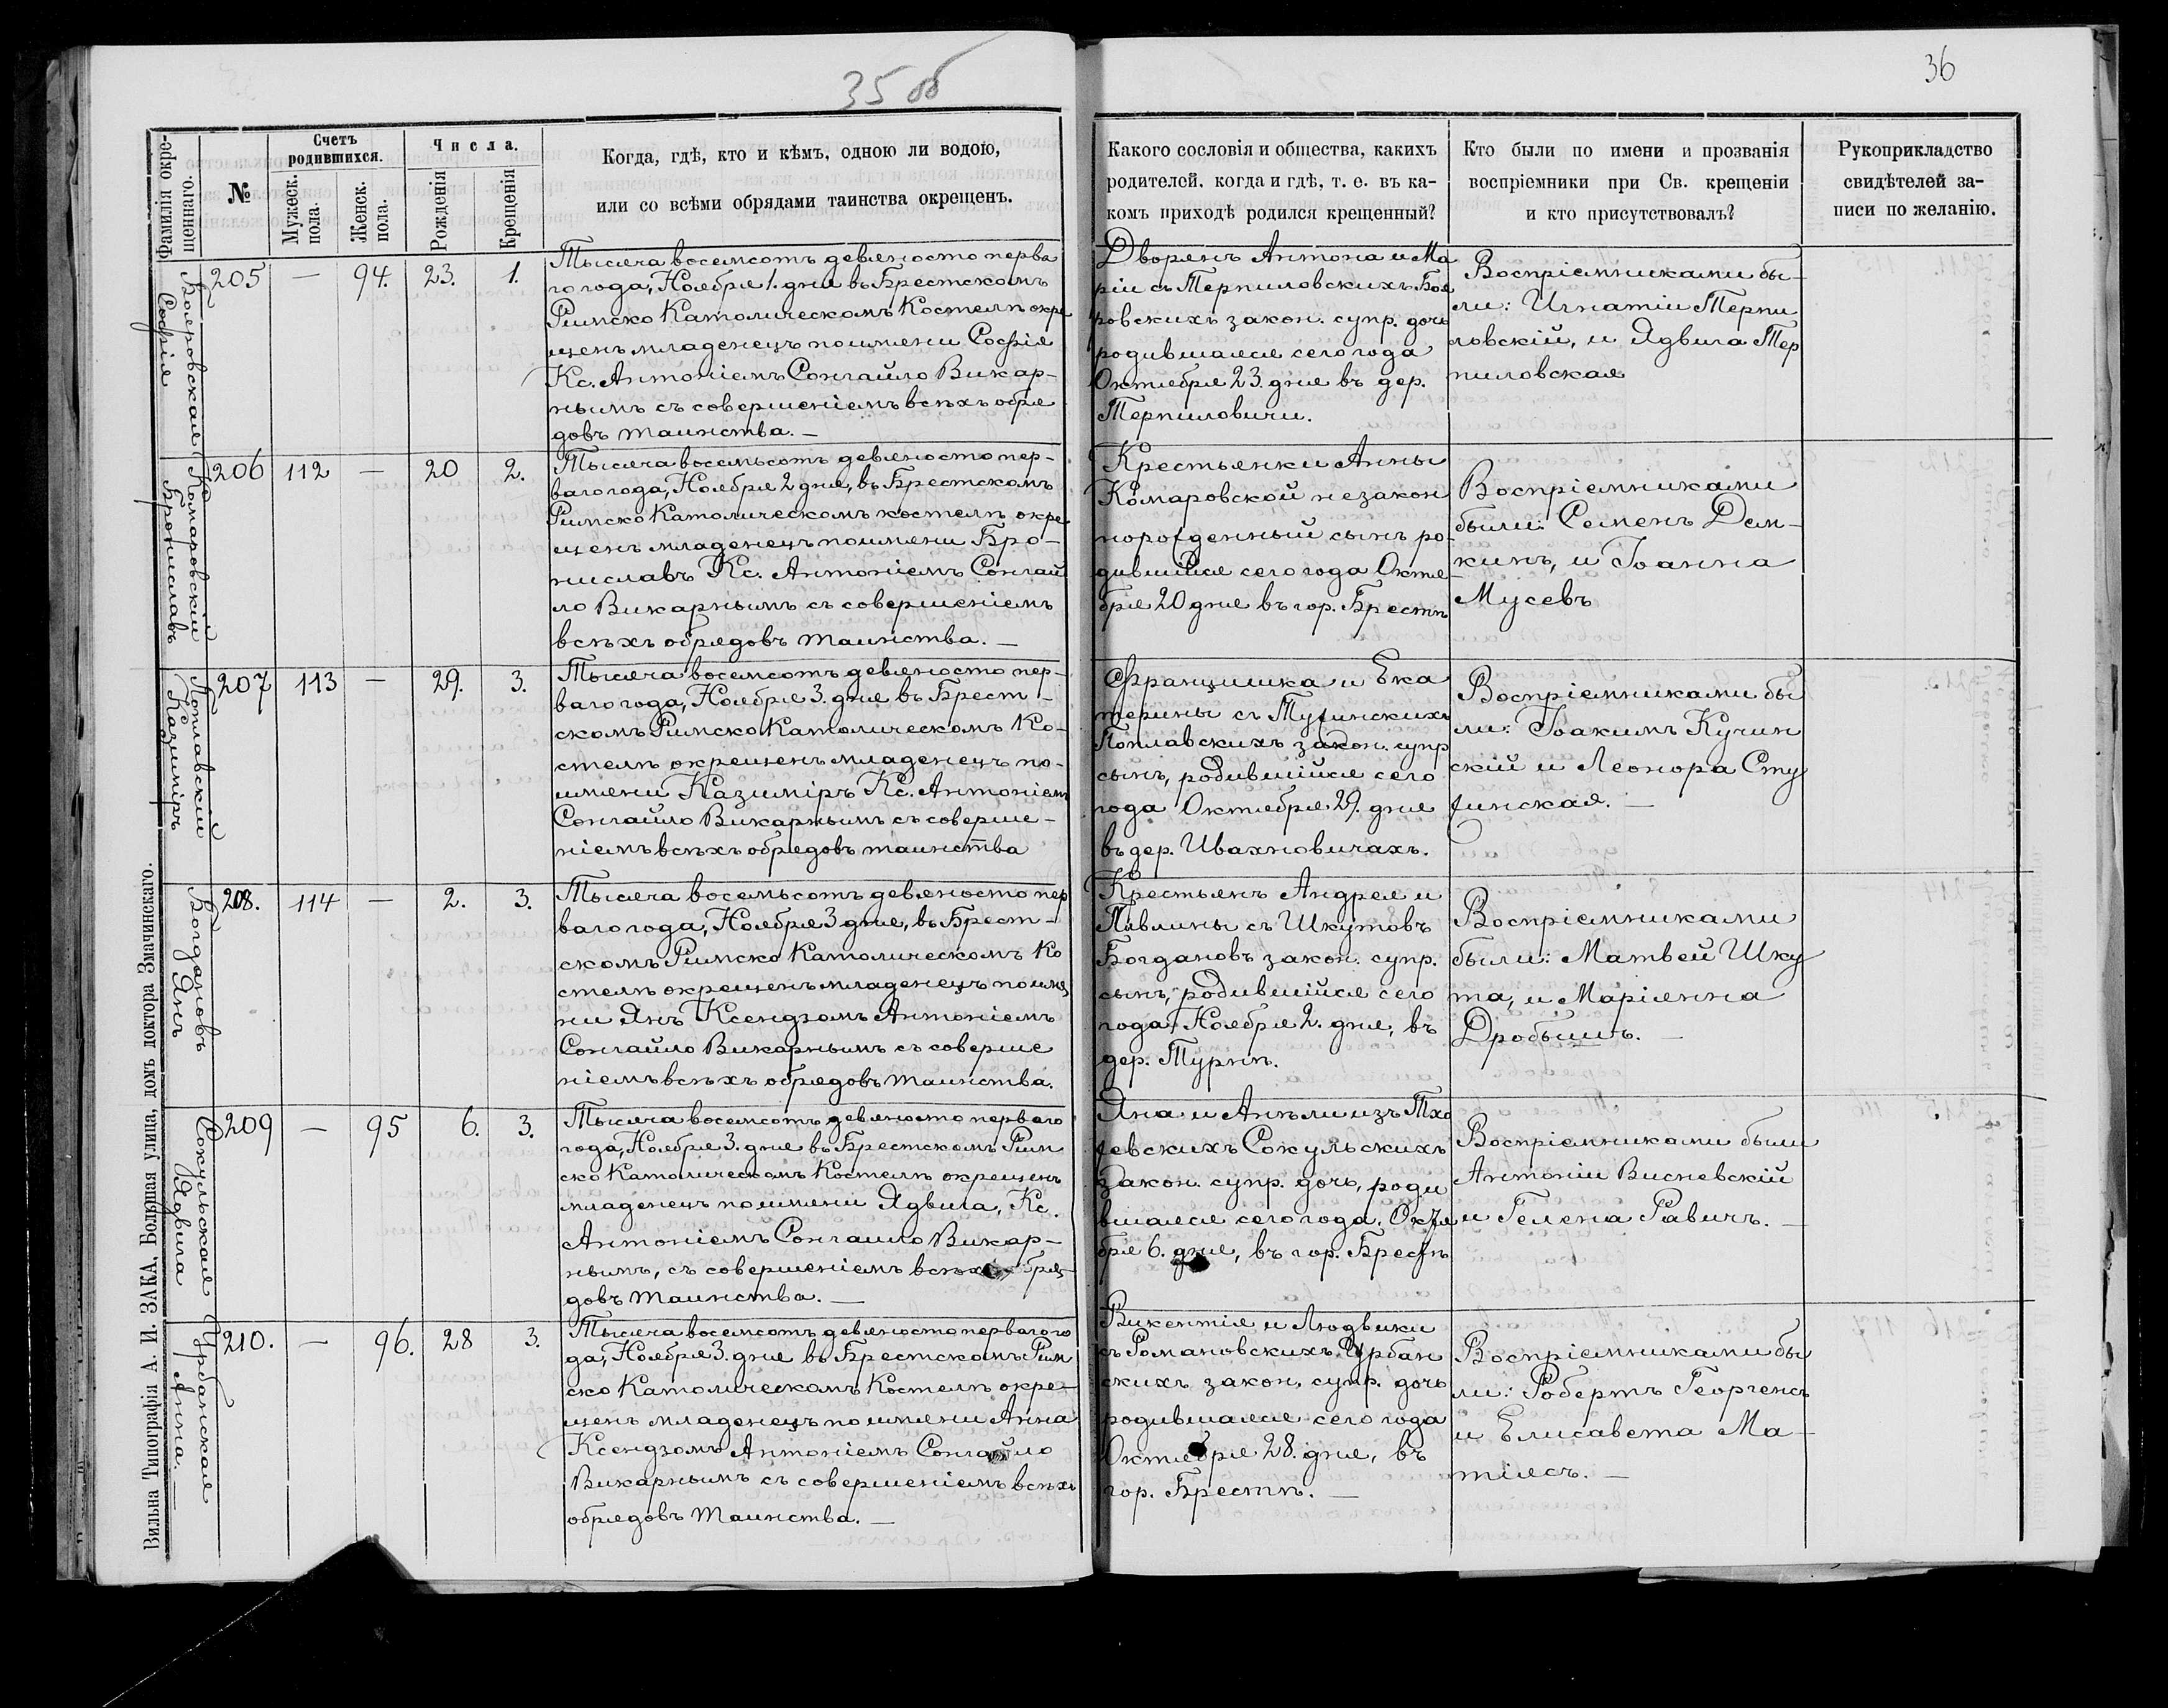 35 об
36
Фамилія окре-
щеннаго.
№
Счетъ
родившихся.
Мужеск.
пола.
Женск.
пола.
Числа.
Рожденія
Крещенія
Когда, гдѣ, кто и кѣмъ, одною ли водою,
или со всѣми обрядами таинства окрещенъ.
Какого сословія и общества, какихъ
родителей, когда и гдѣ, т. е. въ ка-
комъ приходѣ родился крещенный?
Кто были по имени и прозванія
воспріемники при Св. крещеніи
и кто присутствовалъ?
Рукоприкладство
свидѣтелей за-
писи по желанію.
Бояровская
Софія
205 — 94. 23. 1.
Тысяча восемсотъ девяносто перва
го года, Ноября 1. дня въ Брестскомъ
Римско Католическомъ Костелѣ окре
щенъ младенецъ по имени Софія
Кс. Антоніемъ Сонгайло Викар-
нымъ съ совершеніемъ всѣхъ обря
довъ таинства. —
Дворянъ Антона и Ма
ріи съ Терпиловскихъ Боя
ровскихъ закон. супр. дочь
родившаяся сего года
Октября 23. дня въ дер.
Терпиловичи.
Воспріемниками бы-
ли: Игнатіи Терпи
ловскій, и Ядвига Тер
пиловская
Комаровскій
Брониславъ
206 112 — 20 2.
Тысяча восемьсотъ девяносто пер-
ваго года, Ноября 2 дня, въ Брестскомъ
Римско Католическомъ костелѣ окре
щенъ младенецъ по имени Бро-
ниславъ Кс. Антоніемъ Сонгай
ло Викарнымъ съ совершеніемъ
всѣхъ обрядовъ таинства. —
Крестьянки Анны
Комаровской незакон
норожденный сынъ ро-
дившійся сего года Октя
бря 20 дня въ гор. Брестѣ
Воспріемниками
были: Семенъ Дем-
кинъ, и Іоанна
Мусевъ
Поплавскій
Казиміръ
207 113 — 29. 3.
Тысяча восемсотъ девяносто пер-
ваго года, Ноября 3. дня въ Брест-
скомъ Римско Католическомъ Ко-
стелѣ окрещенъ младенецъ по-
имени Казиміръ Кс. Антоніемъ
Сонгайло Викарнымъ съ соверше-
ніемъ всѣхъ обрядовъ таинства
Францишка и Ека
терины съ Тужинскихъ
Поплавскихъ закон. супр
сынъ, родившійся сего
года Октября 29. дня
въ дер. Ивахновичахъ.
Воспріемниками бы
ли: Іоакимъ Кучин
скій и Леонора Сту
жинская. —
Богдановъ
Янъ
208. 114 — 2. 3.
Тысяча восемьсотъ девяносто пер
ваго года, Ноября 3 дня, въ Брест-
скомъ Римско Католическомъ Ко
стелѣ окрещенъ младенецъ по име
ни Янъ Ксендзомъ Антоніемъ
Сонгайло Викарнымъ съ соверше
ніемъ всѣхъ обрядовъ таинства.
Крестьянъ Андрея и
Павлины съ Шкутовъ
Богдановъ закон. супр.
сынъ, родившійся сего
года Ноября 2. дня, въ
дер. Турнѣ.
Воспріемниками
были: Матвей Шку
та, и Маріянна
Дробышъ. —
Сокульская
Ядвига
209 — 95 6. 3.
Тысяча восемсотъ девяносто перваго
года, Ноября 3. дня въ Брестскомъ Рим
ско Католическомъ Костелѣ окрещенъ
младенецъ по имени Ядвига, Кс.
Антоніемъ Сонгаило Викар-
нымъ, съ совершеніемъ всѣхъ обря-
довъ таинства. —
Яна и Анѣли изъ Тхо
жевскихъ Сокульскихъ
закон. супр. дочь, роди
вшаяся сего года. Октя
бря 6. дня, въ гор. Брестѣ
Воспріемниками были
Антоніи Висневскій
и Гелена Равичъ. —
Урбанская
Анна. —
210. — 96. 28 3.
Тысяча восемсотъ девяносто перваго го
да, Ноября 3. дня въ Брестскомъ Рим
ско Католическомъ Костелѣ окре-
щенъ младенецъ по имени Анна
Ксендзомъ Антоніемъ Сонгайло
Викарнымъ съ совершеніемъ всѣхъ
обрядовъ таинства. —
Викентія и Людвики
съ Романовскихъ Урбан
скихъ закон. супр. дочь
родившаяся сего года
Октября 28. дня, въ
гор. Брестѣ. —
Воспріемниками бы
ли: Робертъ Георгенсъ
и Елисавета Ма-
тіясъ. —
Вильна Типографія А. И. ЗАКА, Большая улица, домъ доктора Змачинскаго.